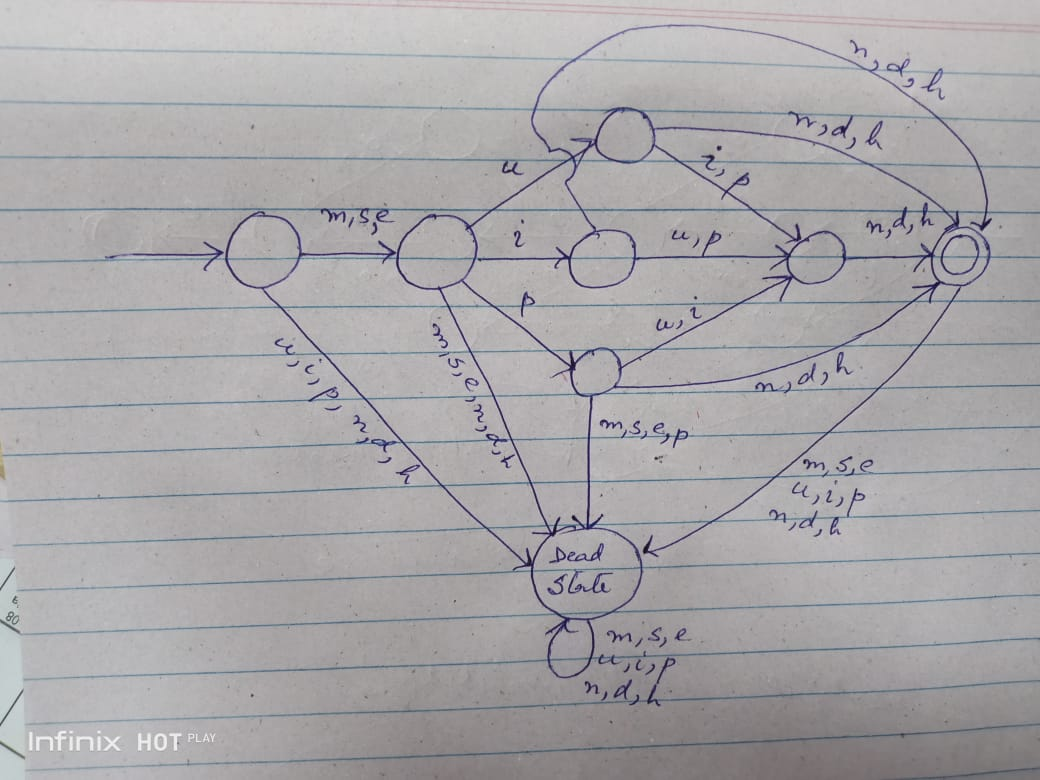 n, d, h
n, d, h
u
i, p
m, s, e
i
u, p
n, d, h
p
u, i
u, i, p, n, d, h
m, s, e, n, d, h
n, d, h
m, s, e, p
m, s, e
u, i, p
n, d, h
Dead
State
m, s, e
u, i, p
n, d, h
Infinix HOT PLAY